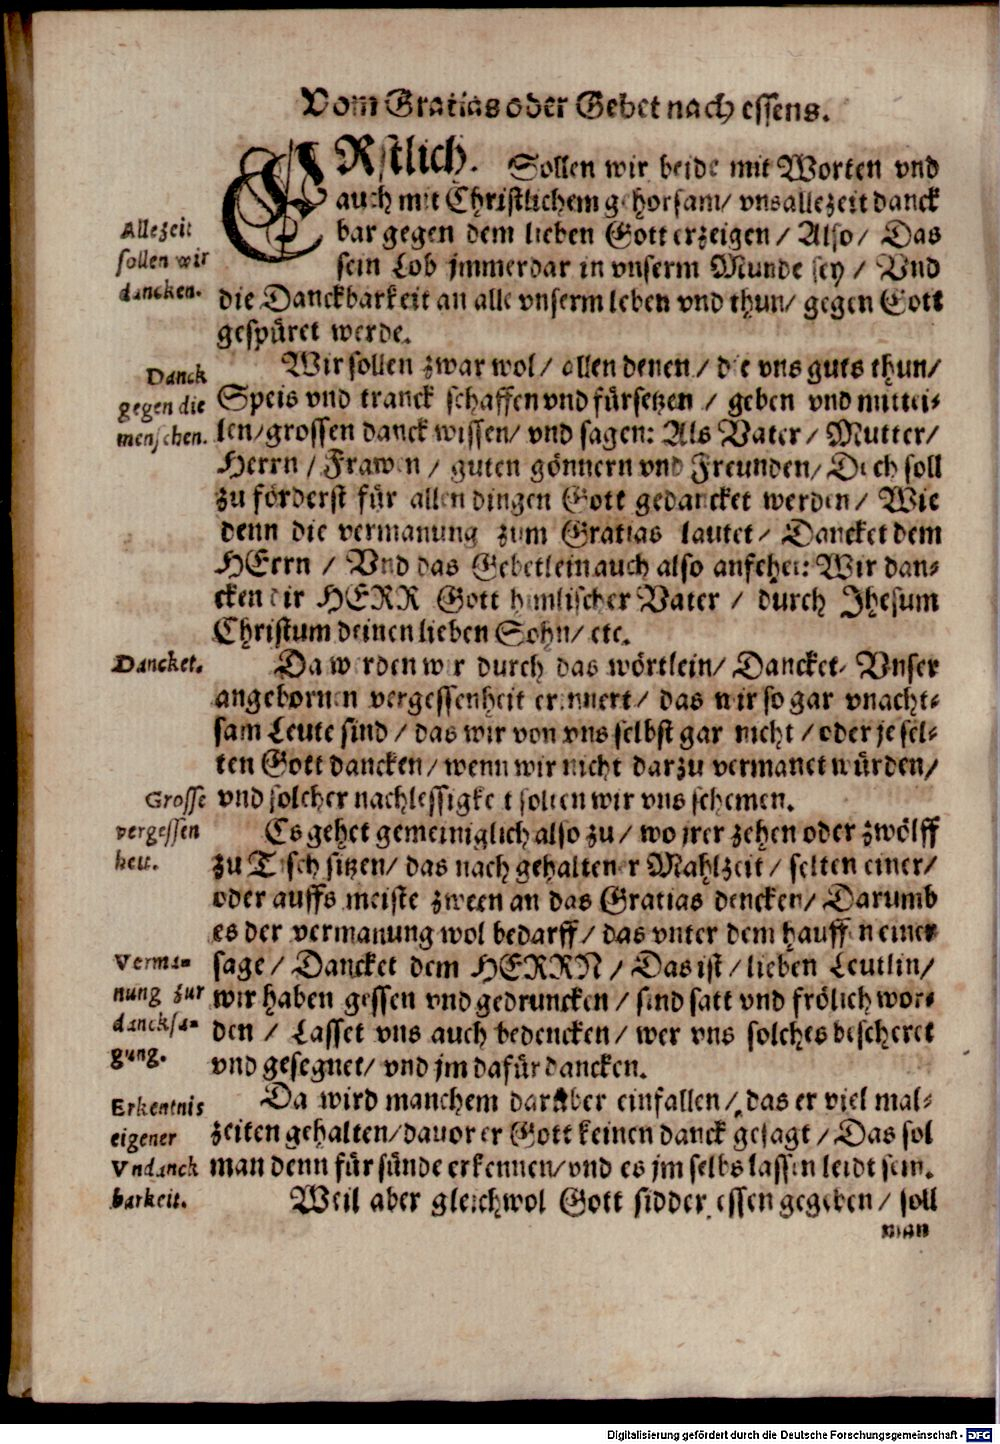 Vom Gratias oder Gebet nach essens.
ERstlich. Sollen wir beide mit Worten vnd
auch mit Christlichem gehorsam/ vns allezeit danck
bar gegen dem lieben Gott erzeigen/ Also/ Das
sein Lob jmmerdar in vnserm Munde sey/ Vnd
die Danckbarkeit an alle vnserm leben vnd thun/ gegen Gott
gespüret werde.
Allezeit
sollen wir
dancken.
Wir sollen zwar wol/ allen denen/ die vns guts thun/
Speis vnd tranck schaffen vnd fürsetzen/ geben vnd mittei-
len/ grossen danck wissen/ vnd sagen: Als Vater/ Mutter/
Herrn/ Frawen/ guten gönnern vnd Freunden/ Doch soll
zu förderst für allen dingen Gott gedancket werden/ Wie
denn die vermanung zum Gratias lautet/ Dancket dem
HErrn/ Vnd das Gebetlein auch also anfehet: Wir dan-
cken dir HERR Gott himlischer Vater/ durch Jhesum
Christum deinen lieben Sohn/ etc.
Danck
gegen die
menschen.
Da werden wir durch das wörtlein/ Dancket/ Vnser
angebornen vergessenheit erinnert/ das wir so gar vnacht-
sam Leute sind/ das wir von vns selbst gar nicht/ oder je sel-
ten Gott dancken/ wenn wir nicht darzu vermanet würden/
vnd solcher nachlessigkeit solten wir vns schemen.
Dancket.
Es gehet gemeiniglich also zu/ wo jrer zehen oder zwölff
zu Tisch sitzen/ das nach gehaltener Mahlzeit/ selten einer/
oder auffs meiste zween an das Gratias dencken/ Darumb
es der vermanung wol bedarff/ das vnter dem hauffen einer
sage/ Dancket dem HERRN/ Das ist/ lieben Leutlin/
wir haben gessen vnd gedruncken/ sind satt vnd frölich wor-
den/ Lasset vns auch bedencken/ wer vns solches bescheret
vnd gesegnet/ vnd jm dafür dancken.
Grosse
vergessen
heit.
Verma-
nung zur
dancksa-
gung.
Da wird manchem darüber einfallen/ das er viel mal-
zeiten gehalten/ dauor er Gott keinen danck gesagt/ Das sol
man denn für sünde erkennen/ vnd es jm selbs lassen leidt sein.
Weil aber gleichwol Gott sidder essen gegeben/ soll
Erkentnis
eigener
Vndanck
barkeit.
man
Digitalisierung gefördert durch die Deutsche Forschungsgemeinschaft - DFG